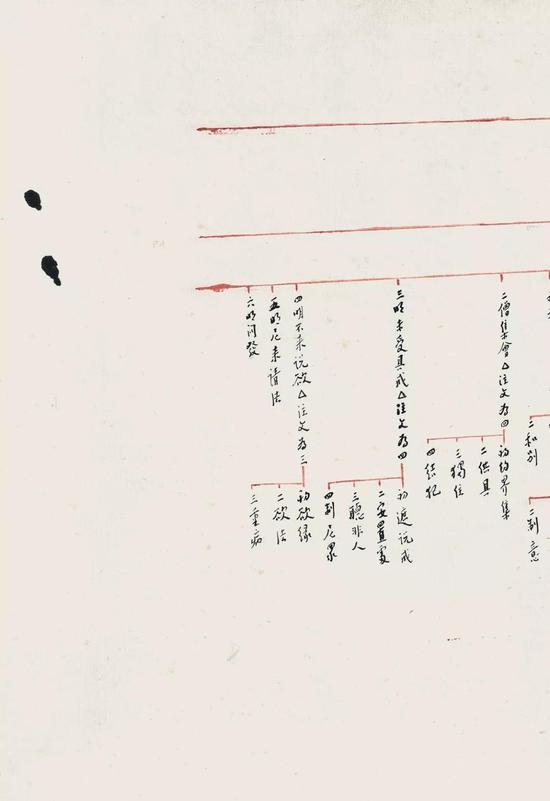 二和別
二制意
二僧集會△注文爲四
初約界集
二供具
三獨住
四結犯
三明未受具戒△注文爲四
初遮說戒
二安置處
三聽非人
四制尼眾
四明不來說欲△注文爲三
初欲緣
二欲法
三重病
五明尼來請法
六明問發